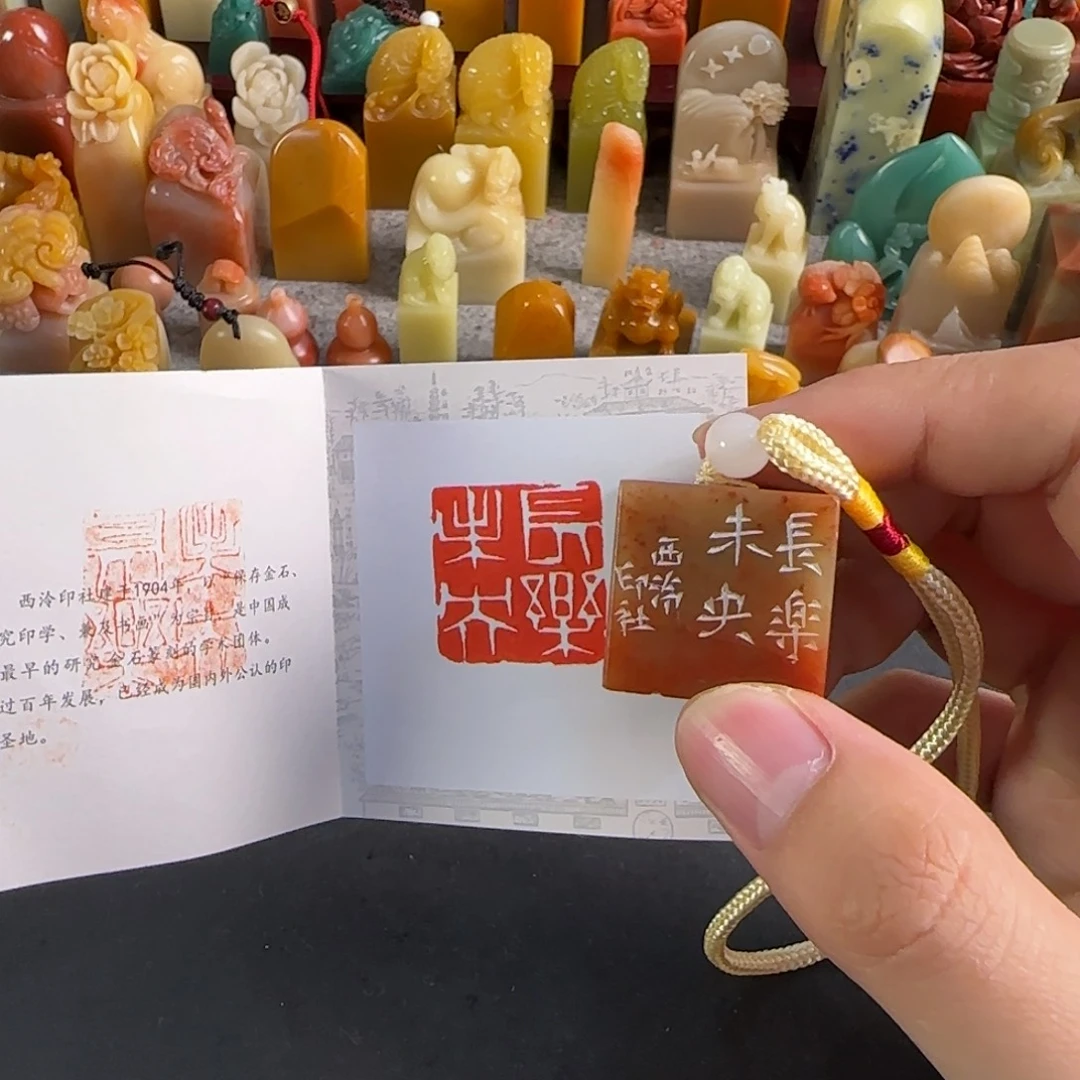 西泠印社建于1904年，以“保存金石、
究印学、兼及书画”为宗旨，是中国成
最早的研究金石篆刻的学术团体。
过百年发展，已经成为国内外公认的印
圣地。
長樂
未央
長楽
未央
西泠
印社